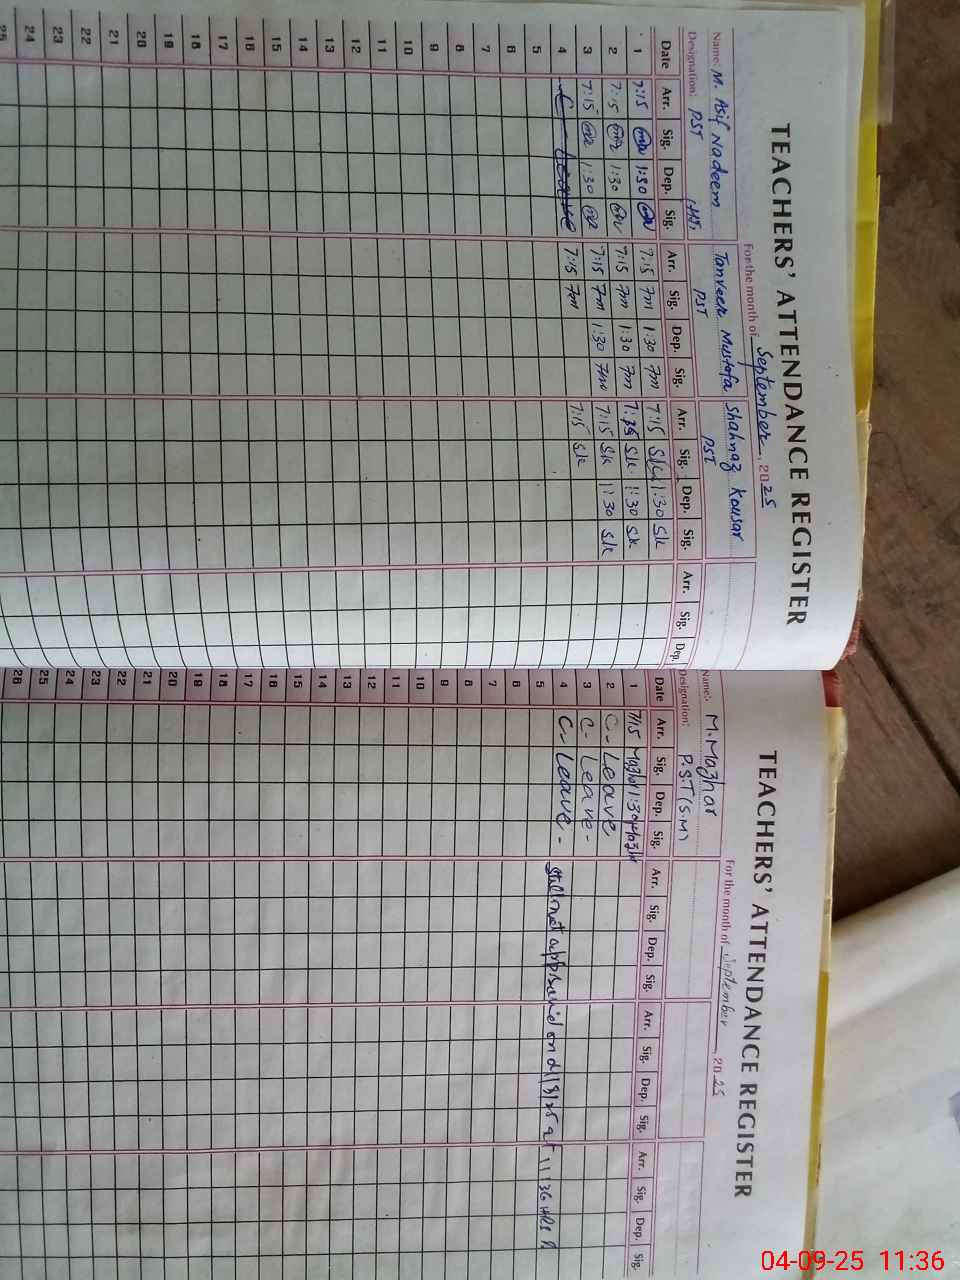 TEACHERS' ATTENDANCE REGISTER
For the month of September, 2025
Name: M. Asif Nadeem Tanveer Mustafa Shahnaz Kousar
Designation: PST (HT). PST PST
Date Arr. Sig. Dep. Sig. Arr. Sig. Dep. Sig. Arr. Sig. Dep. Sig. Arr. Sig. Dep.
1 7:15 1:30 7:15 Tm 1:30 Tm 7:15 1:30 Sk
2 7:15 1:30 7:15 Tm 1:30 Tm 7:15 Sk. 1:30 Sk
3 7:15 1:30 7:15 Tm 1:30 Tm 7:15 Sk 1:30 Sk
4 7:15 Tm 7:15 Sk
5
6
7
8
9
10
11
12
13
14
15
16
17
18
19
20
21
22
23
24
25
TEACHERS' ATTENDANCE REGISTER
For the month of September, 2025
Name: M. Mazhar
Designation: P.S.T (S.M)
Date Arr. Sig. Dep. Sig. Arr. Sig. Dep. Sig. Arr. Sig. Dep. Sig. Arr. Sig. Dep. Sig.
1 7/15 Mazhar 1:30 Mazhar
2 C - Leave
3 C - Leave -
4 C - Leave -
5 Still not on at 11:36 HRS
6
7
8
9
10
11
12
13
14
15
16
17
18
19
20
21
22
23
24
25
26
04-09-25 11:36